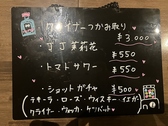 ・クライナーつかみ取り
¥3,000
・丁丁茉莉花 ¥550
・トマトサワー ¥550
・ショットガチャ ¥500
(テキーラ・ローズ・ウィスキー・イエガ
クライナー・ウォッカ・ケツバット)